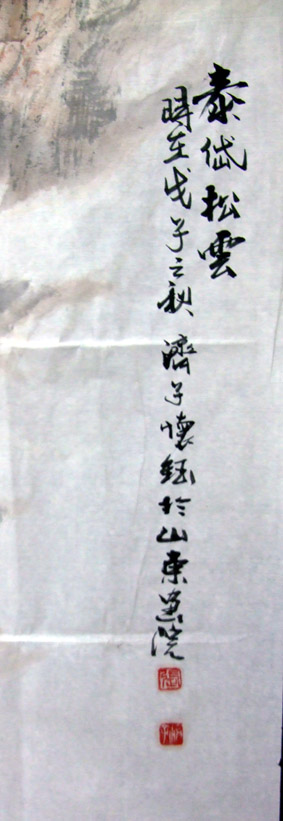 泰岱松雲
時在戊子之秋 濟子懷鈺於山東畫院